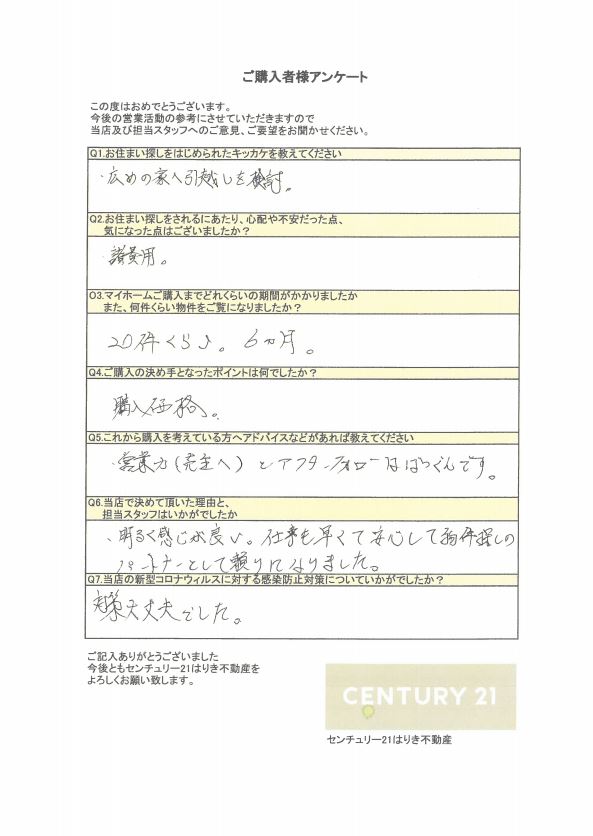 ご購入者様アンケート
この度はおめでとうございます。
今後の営業活動の参考にさせていただきますので
当店及び担当スタッフへのご意見、ご要望をお聞かせください。
Q1.お住まい探しをはじめられたキッカケを教えてください
・広めの家へ引越しを検討。
Q2.お住まい探しをされるにあたり、心配や不安だった点、
気になった点はございましたか？
諸費用。
Q3.マイホームご購入までどれくらいの期間がかかりましたか
また、何件くらい物件をご覧になりましたか？
20件くらい。 6ヵ月。
Q4.ご購入の決め手となったポイントは何でしたか？
購入価格。
Q5.これから購入を考えている方へアドバイスなどがあれば教えてください
・営業力(売主へ)とアフターフォローはばつぐんです。
Q6.当店で決めて頂いた理由と、
担当スタッフはいかがでしたか
、明るく感じが良い。仕事も早くて安心して物件探しの
パートナーとして頼りになりました。
Q7.当店の新型コロナウィルスに対する感染防止対策についていかがでしたか？
対策大丈夫でした。
ご記入ありがとうございました
今後ともセンチュリー21はりき不動産を
よろしくお願い致します。
CENTURY 21
センチュリー21はりき不動産